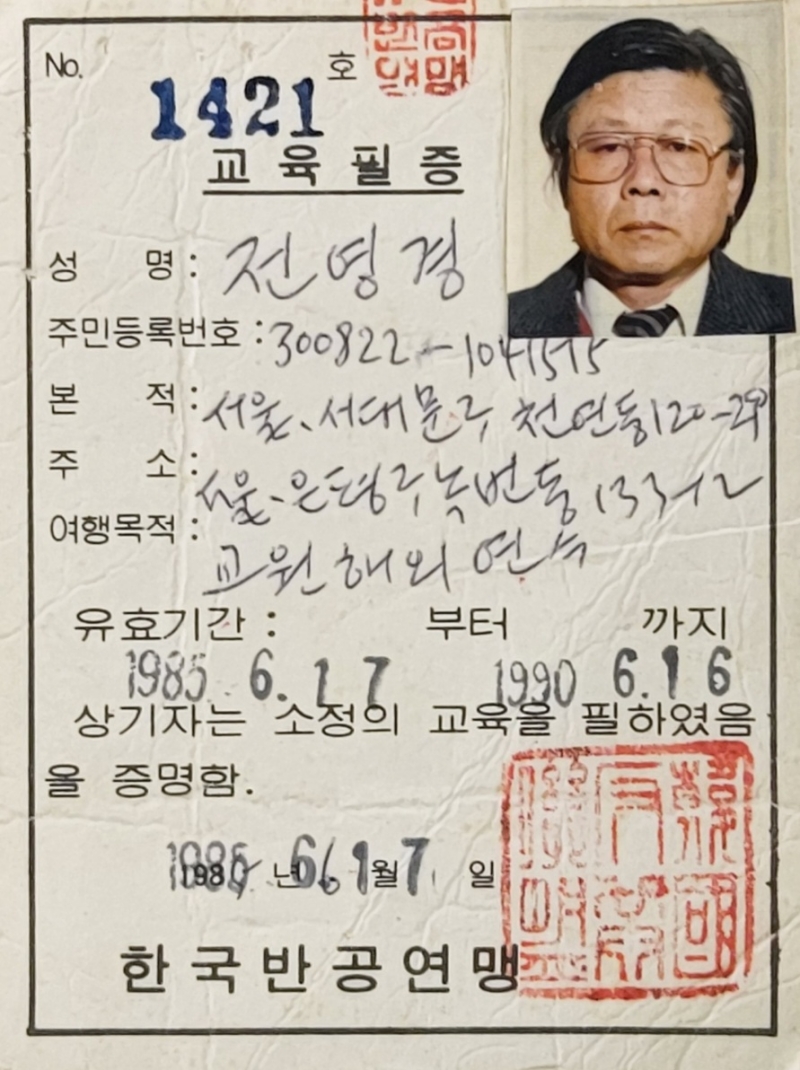 No. 1421 호
교육필증
성 명 : 전영경
주민등록번호 : 300822-1041515
본 적 : 서울. 서대문구 천연동 120-29
주 소 : 서울. 은평구 녹번동 133-12
여행목적 : 교원 해외 연수
유효기간 : 부터 까지
1985. 6. 17 1990 6. 16
상기자는 소정의 교육을 필하였음
을 증명함.
1985 년 6. 월 17 일
한국반공연맹